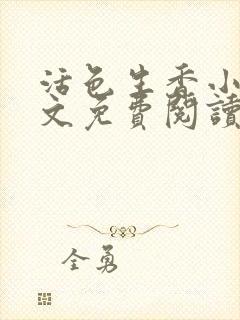 活色生香小
文免費閱讀
全勇